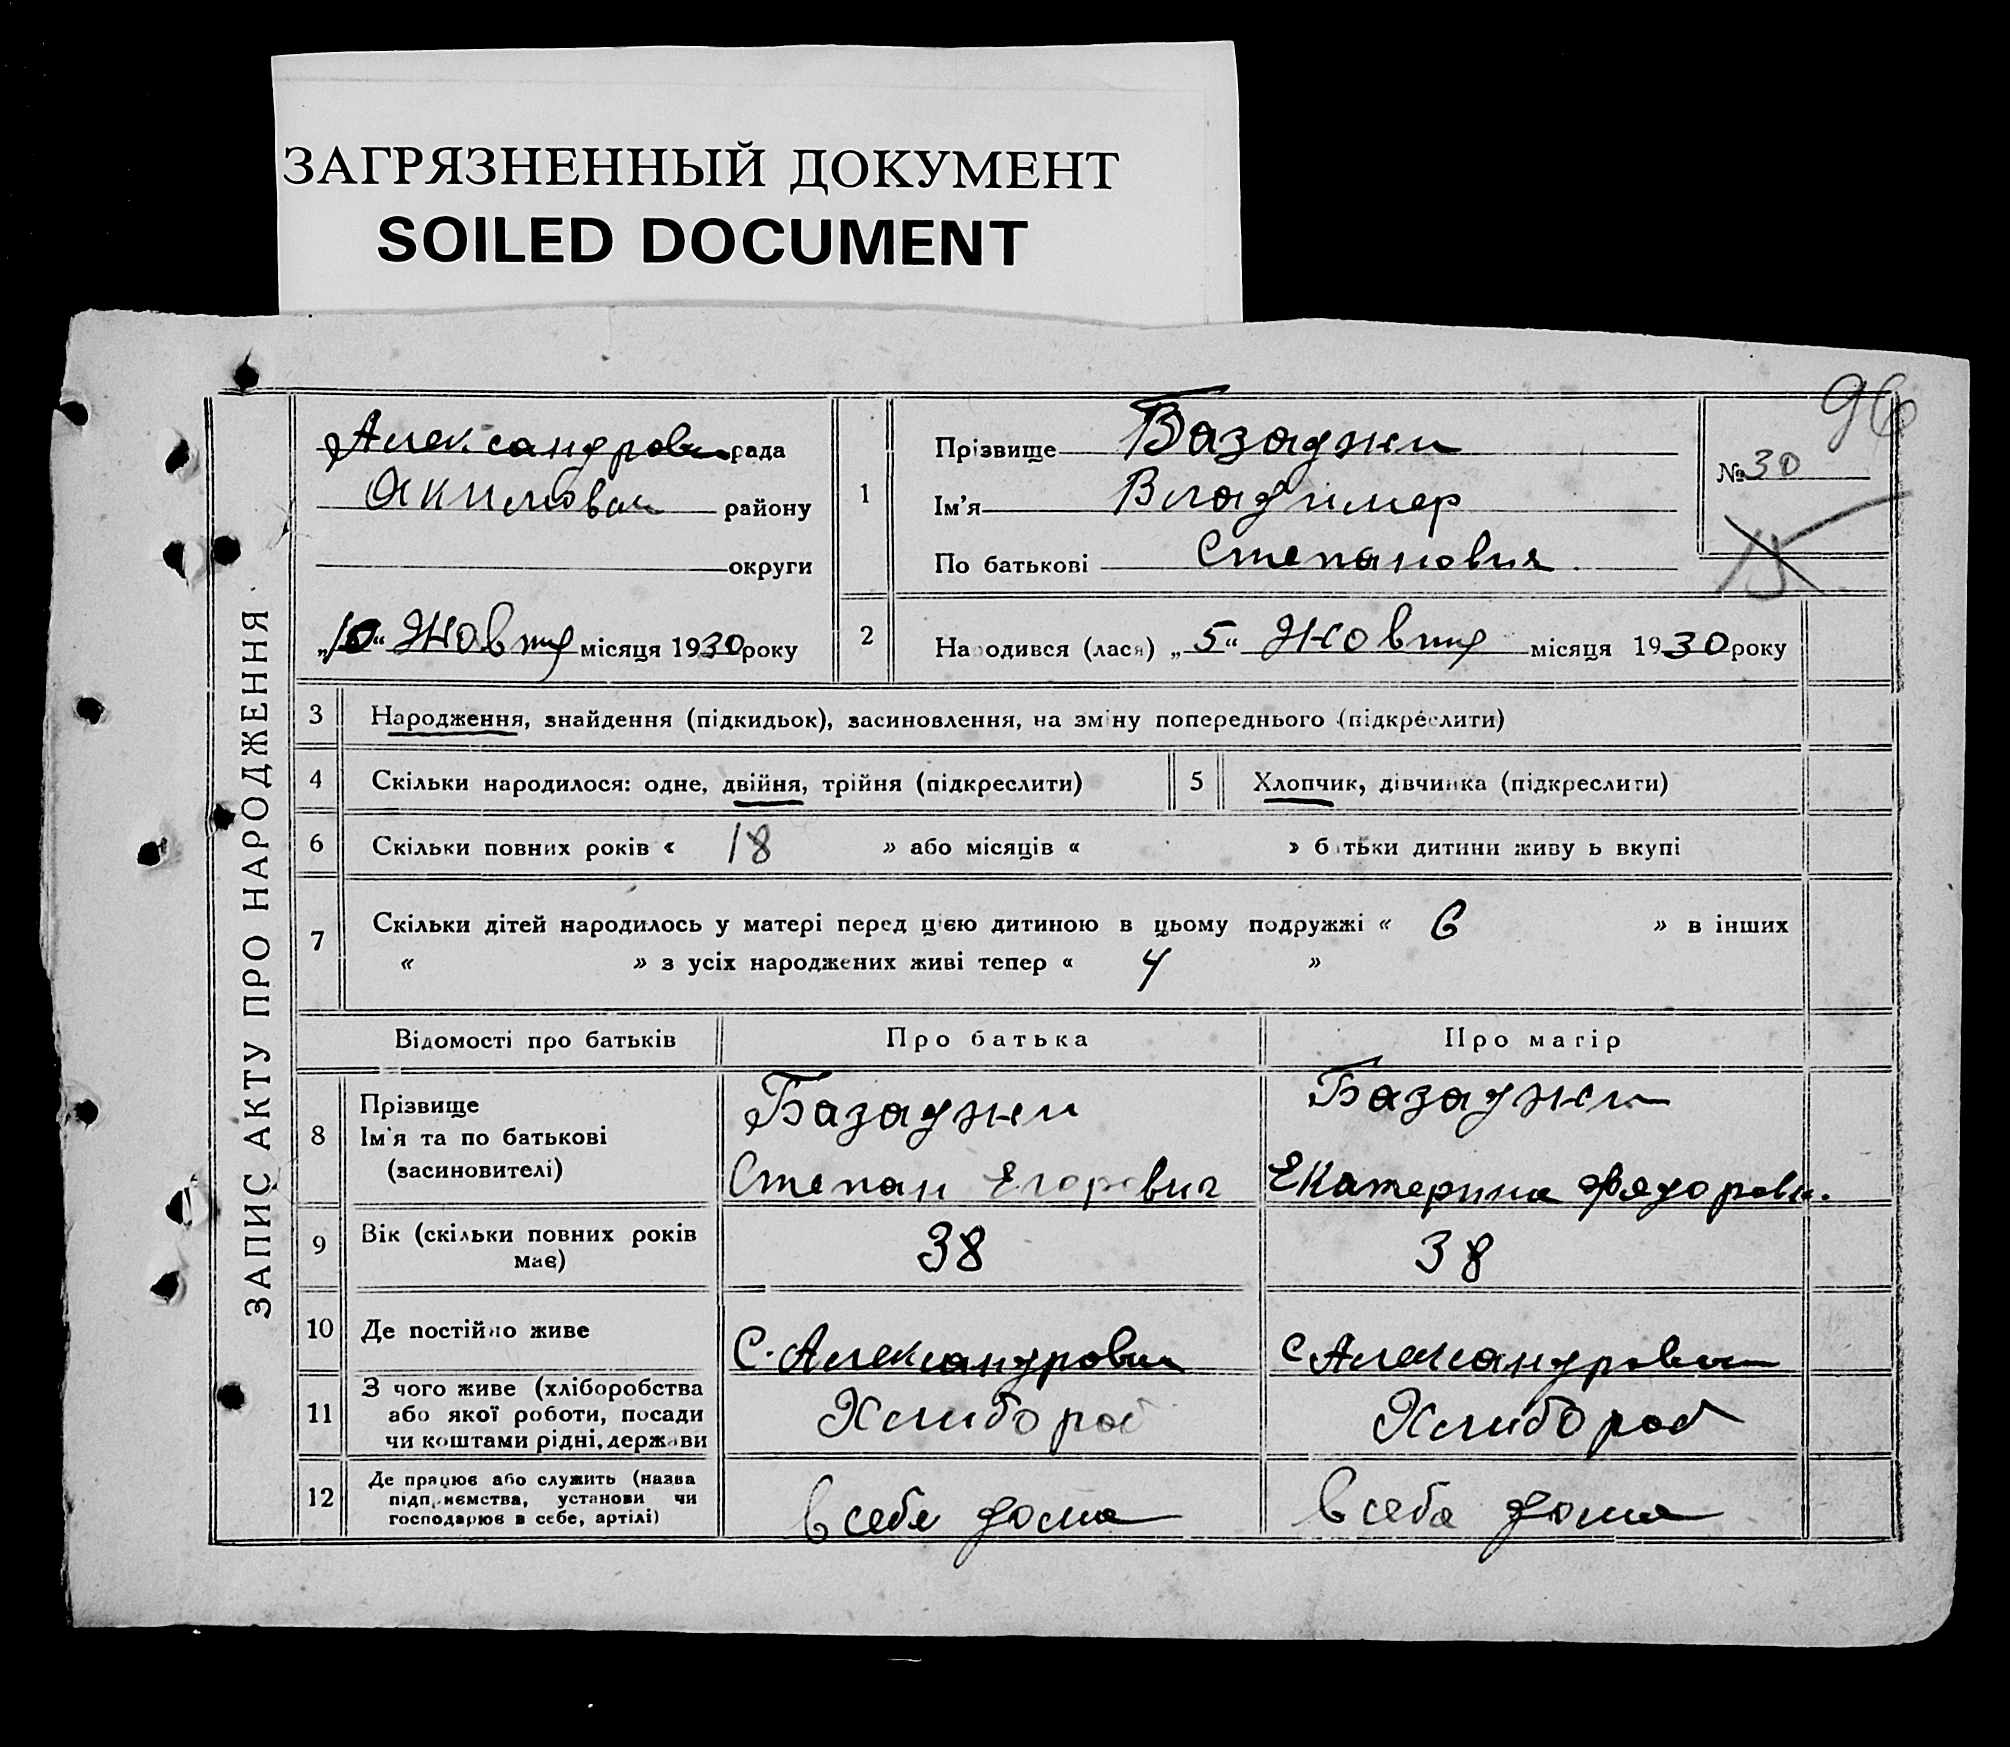 ЗАГРЯЗНЕННЫЙ ДОКУМЕНТ
SOILED DOCUMENT
96
ЗАПИС АКТУ ПРО НАРОДЖЕННЯ
Александровка рада
Якимовка району
округи
„10“ Жовтня місяця 1930 року
1
Прізвище Базаджи
Ім'я Владимер
По батькові Степановия
№ 30
15
2
Народився (лася) „5“ Жовтня місяця 1930 року
3 Народження, знайдення (підкидьок), засиновлення, на зміну попереднього (підкреслити)
4 Скільки народилося: одне, двійня, трійня (підкреслити)
5 Хлопчик, дівчинка (підкреслити)
6 Скільки повних років « 18 » або місяців « » батьки дитини живу ь вкупі
7 Скільки дітей народилось у матері перед цією дитиною в цьому подружжі « 6 » в інших
« » з усіх народжених живі тепер « 4 »
Відомості про батьків
Про батька
Про матір
8 Прізвище
Ім'я та по батькові
(засиновителі)
Базаджи
Степан Егорович
Базаджи
Екатерина Фядоровн.
9 Вік (скільки повних років
має)
38
38
10 Де постійно живе
С. Александровка
С Александровка
11 З чого живе (хліборобства
або якої роботи, посади
чи коштами рідні, держави
Хлибороб
Хлибороб
12 Де працює або служить (назва
підприємства, установи чи
господарює в себе, артілі)
в себя дома
в себя дома